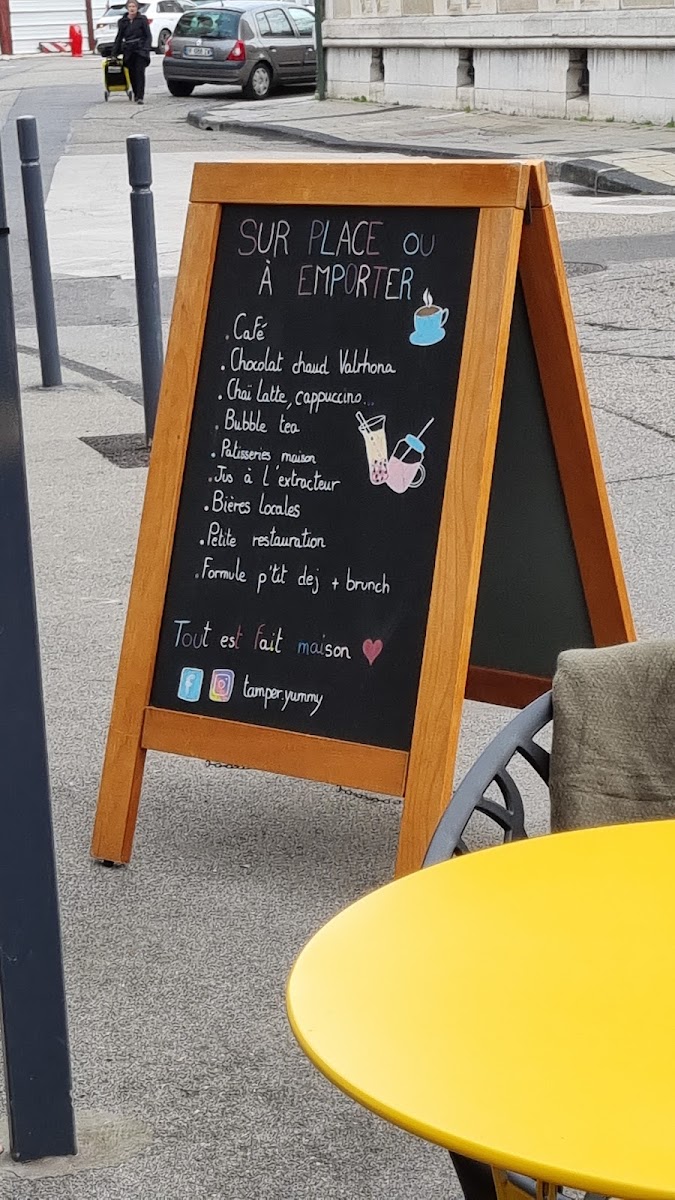 SUR PLACE OU
À EMPORTER
. Café
. Chocolat chaud Valrhona
. Chaï latte, cappuccino...
. Bubble tea
. Patisseries maison
. Jus à l'extracteur
. Bières locales
. Petite restauration
. Formule p'tit dej + brunch
Tout est fait maison
tamper.yummy